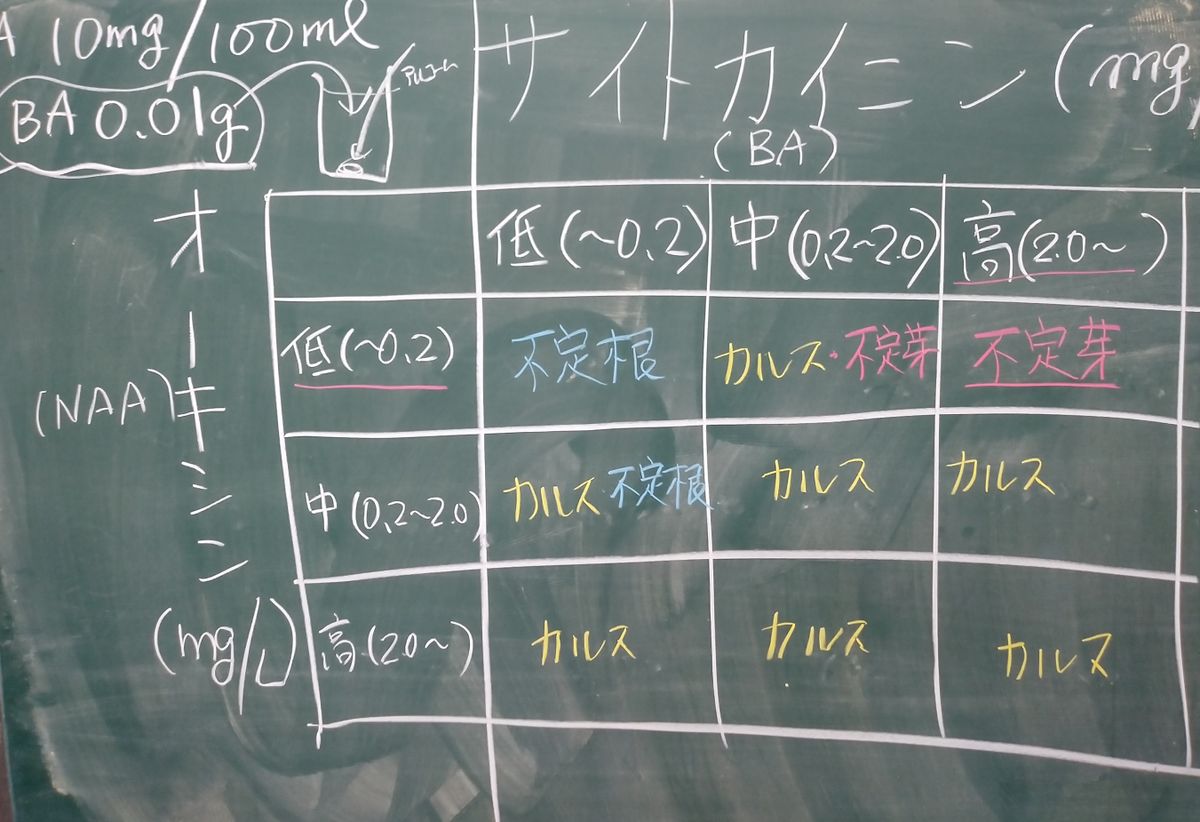 A 10mg/100ml
BA 0.01g
アルコール
サイトカイニン (mg/
(BA)
オーキシン
(NAA)
(mg/L)
低(~0.2) 中(0.2~2.0) 高(2.0~)
低(~0.2) 不定根 カルス・不定芽 不定芽
中(0.2~2.0) カルス 不定根 カルス カルス
高(2.0~) カルス カルス カルス